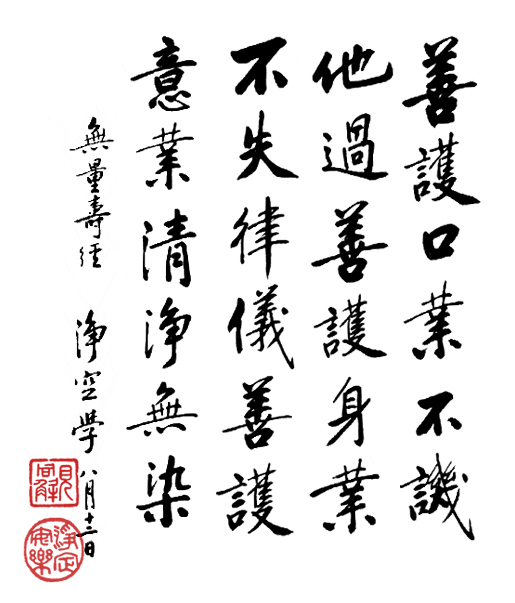 善護口業不譏
他過善護身業
不失律儀善護
意業清淨無染
無量壽經 淨空学
八月十三日